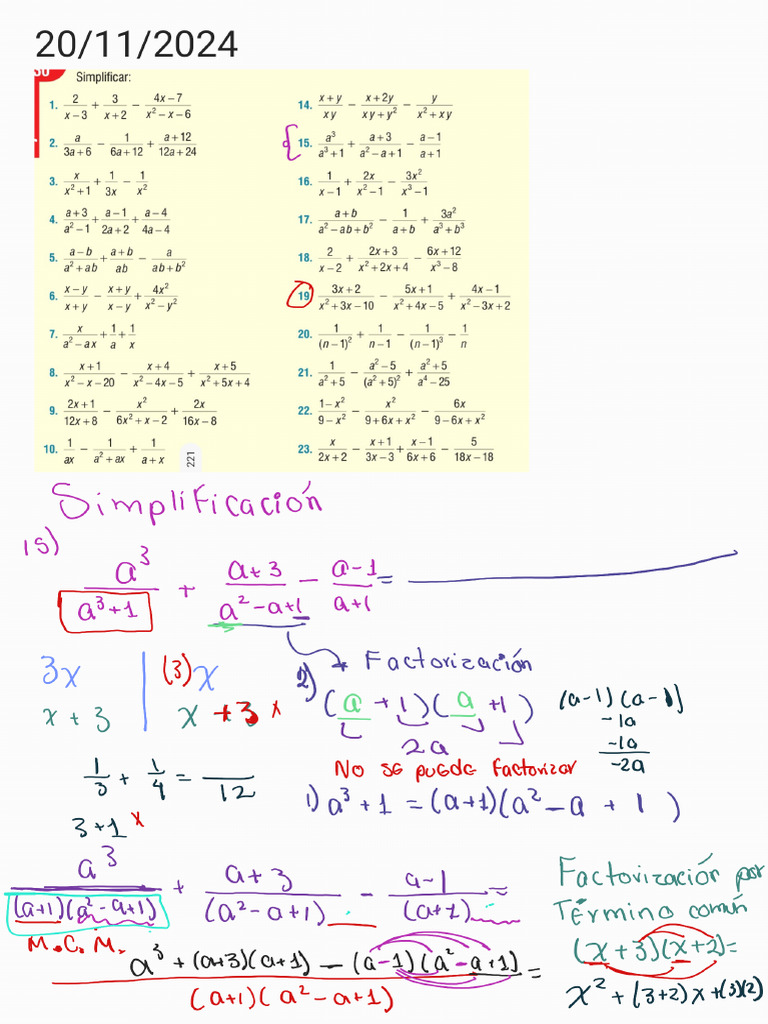 20/11/2024
30
Simplificar:
1. 2/(x−3) + 3/(x+2) − (4x−7)/(x²−x−6)
2. a/(3a+6) − 1/(6a+12) + (a+12)/(12a+24)
3. x/(x²+1) + 1/(3x) − 1/x²
4. (a+3)/(a²−1) + (a−1)/(2a+2) + (a−4)/(4a−4)
5. (a−b)/(a²+ab) + (a+b)/(ab) − a/(ab+b²)
6. (x−y)/(x+y) − (x+y)/(x−y) + 4x²/(x²−y²)
7. x/(a²−ax) + 1/a + 1/x
8. (x+1)/(x²−x−20) − (x+4)/(x²−4x−5) + (x+5)/(x²+5x+4)
9. (2x+1)/(12x+8) − x²/(6x²+x−2) + 2x/(16x−8)
10. 1/(ax) − 1/(a²+ax) + 1/(a+x)
221
14. (x+y)/(xy) − (x+2y)/(xy+y²) − y/(x²+xy)
15. a³/(a³+1) + (a+3)/(a²−a+1) − (a−1)/(a+1)
16. 1/(x−1) + 2x/(x²−1) − 3x²/(x³−1)
17. (a+b)/(a²−ab+b²) − 1/(a+b) + 3a²/(a³+b³)
18. 2/(x−2) + (2x+3)/(x²+2x+4) − (6x+12)/(x³−8)
19. (3x+2)/(x²+3x−10) − (5x+1)/(x²+4x−5) + (4x−1)/(x²−3x+2)
20. 1/(n−1)² + 1/(n−1) − 1/(n−1)³ − 1/n
21. 1/(a²+5) − (a²−5)/(a²+5)² + (a²+5)/(a⁴−25)
22. (1−x²)/(9−x²) − x²/(9+6x+x²) − 6x/(9−6x+x²)
23. x/(2x+2) − (x+1)/(3x−3) + (x−1)/(6x+6) − 5/(18x−18)
Simplificación
15)
a³/(a³+1) + (a+3)/(a²−a+1) − (a−1)/(a+1) =
3x (3)x
x+3 x+3 x
1/3 + 1/4 = /12
3+1 x
* Factorización
2) (a+1)(a+1)
2a
No se puede factorizar
(a−1)(a−1)
−1a
−1a
−2a
1) a³+1 = (a+1)(a²−a+1)
a³/((a+1)(a²−a+1)) + (a+3)/(a²−a+1) − (a−1)/(a+1) =
M.C.M.
(a³+(a+3)(a+1)−(a−1)(a²−a+1))/((a+1)(a²−a+1)) =
Factorización por
Término común
(x+3)(x+2)=
x²+(3+2)x+(3)(2)